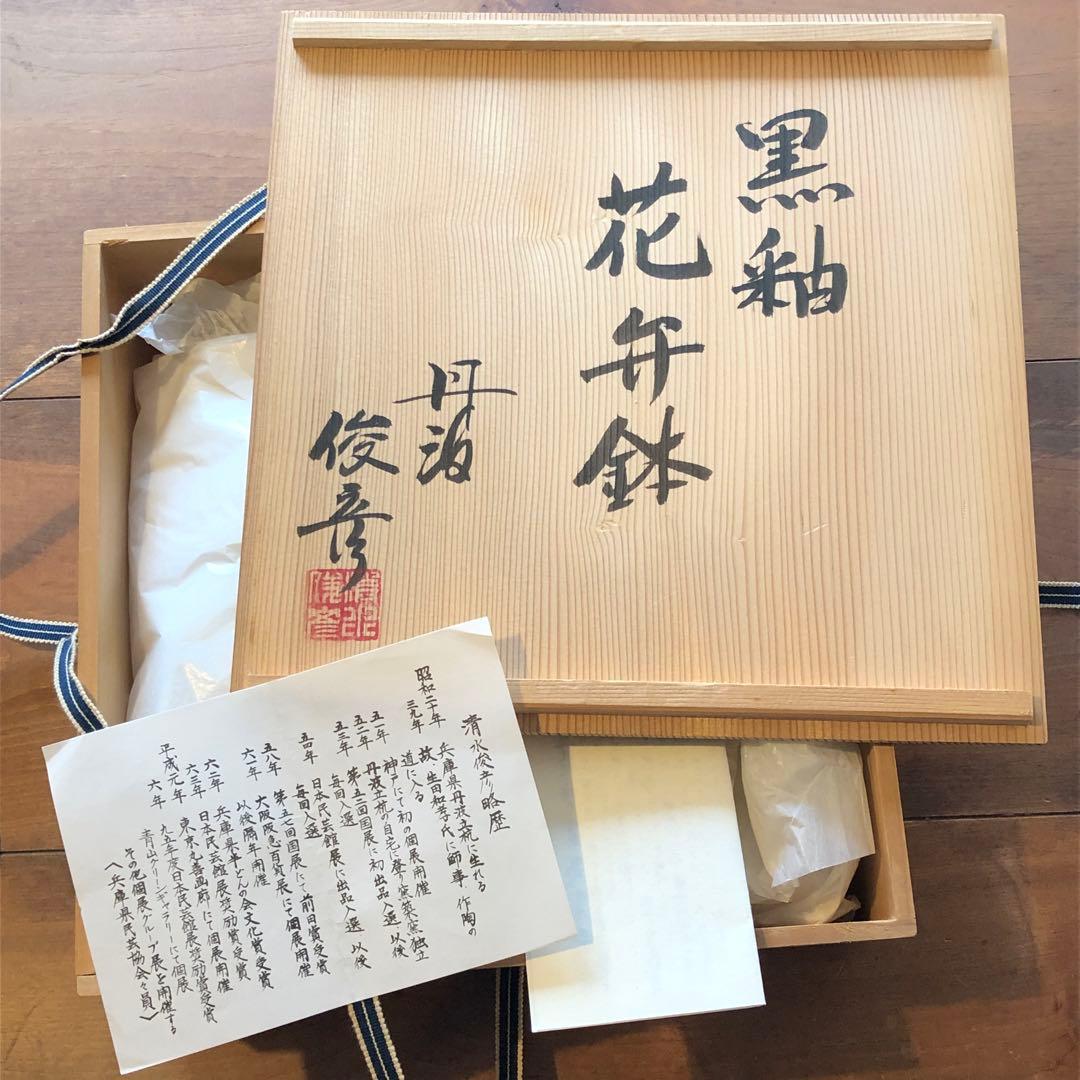 黒釉
花弁鉢
丹波
俊彦
清水俊彦略歴
昭和二十年 兵庫県丹波立杭に生れる
三九年 故 生田和孝氏に師事、作陶の
道に入る
五一年 神戸にて初の個展開催
五二年 丹波立杭の自宅に登り窯築窯独立
第五二回国展に初出品入選 以後
毎回入選
五三年 日本民芸館展に出品入選 以後
毎回入選
五四年 第五七回国展にて前田賞受賞
五八年 大阪阪急百貨展にて個展開催
以後隔年開催
六一年 兵庫県半どんの会文化賞受賞
六二年 日本民芸館展奨励賞受賞
六三年 東京丸善画廊にて個展開催
平成元年 九五年度日本民芸館展奨励賞受賞
六年 青山グリーンギャラリーにて個展
その他個展、グループ展を開催する
(兵庫県民芸協会々員)